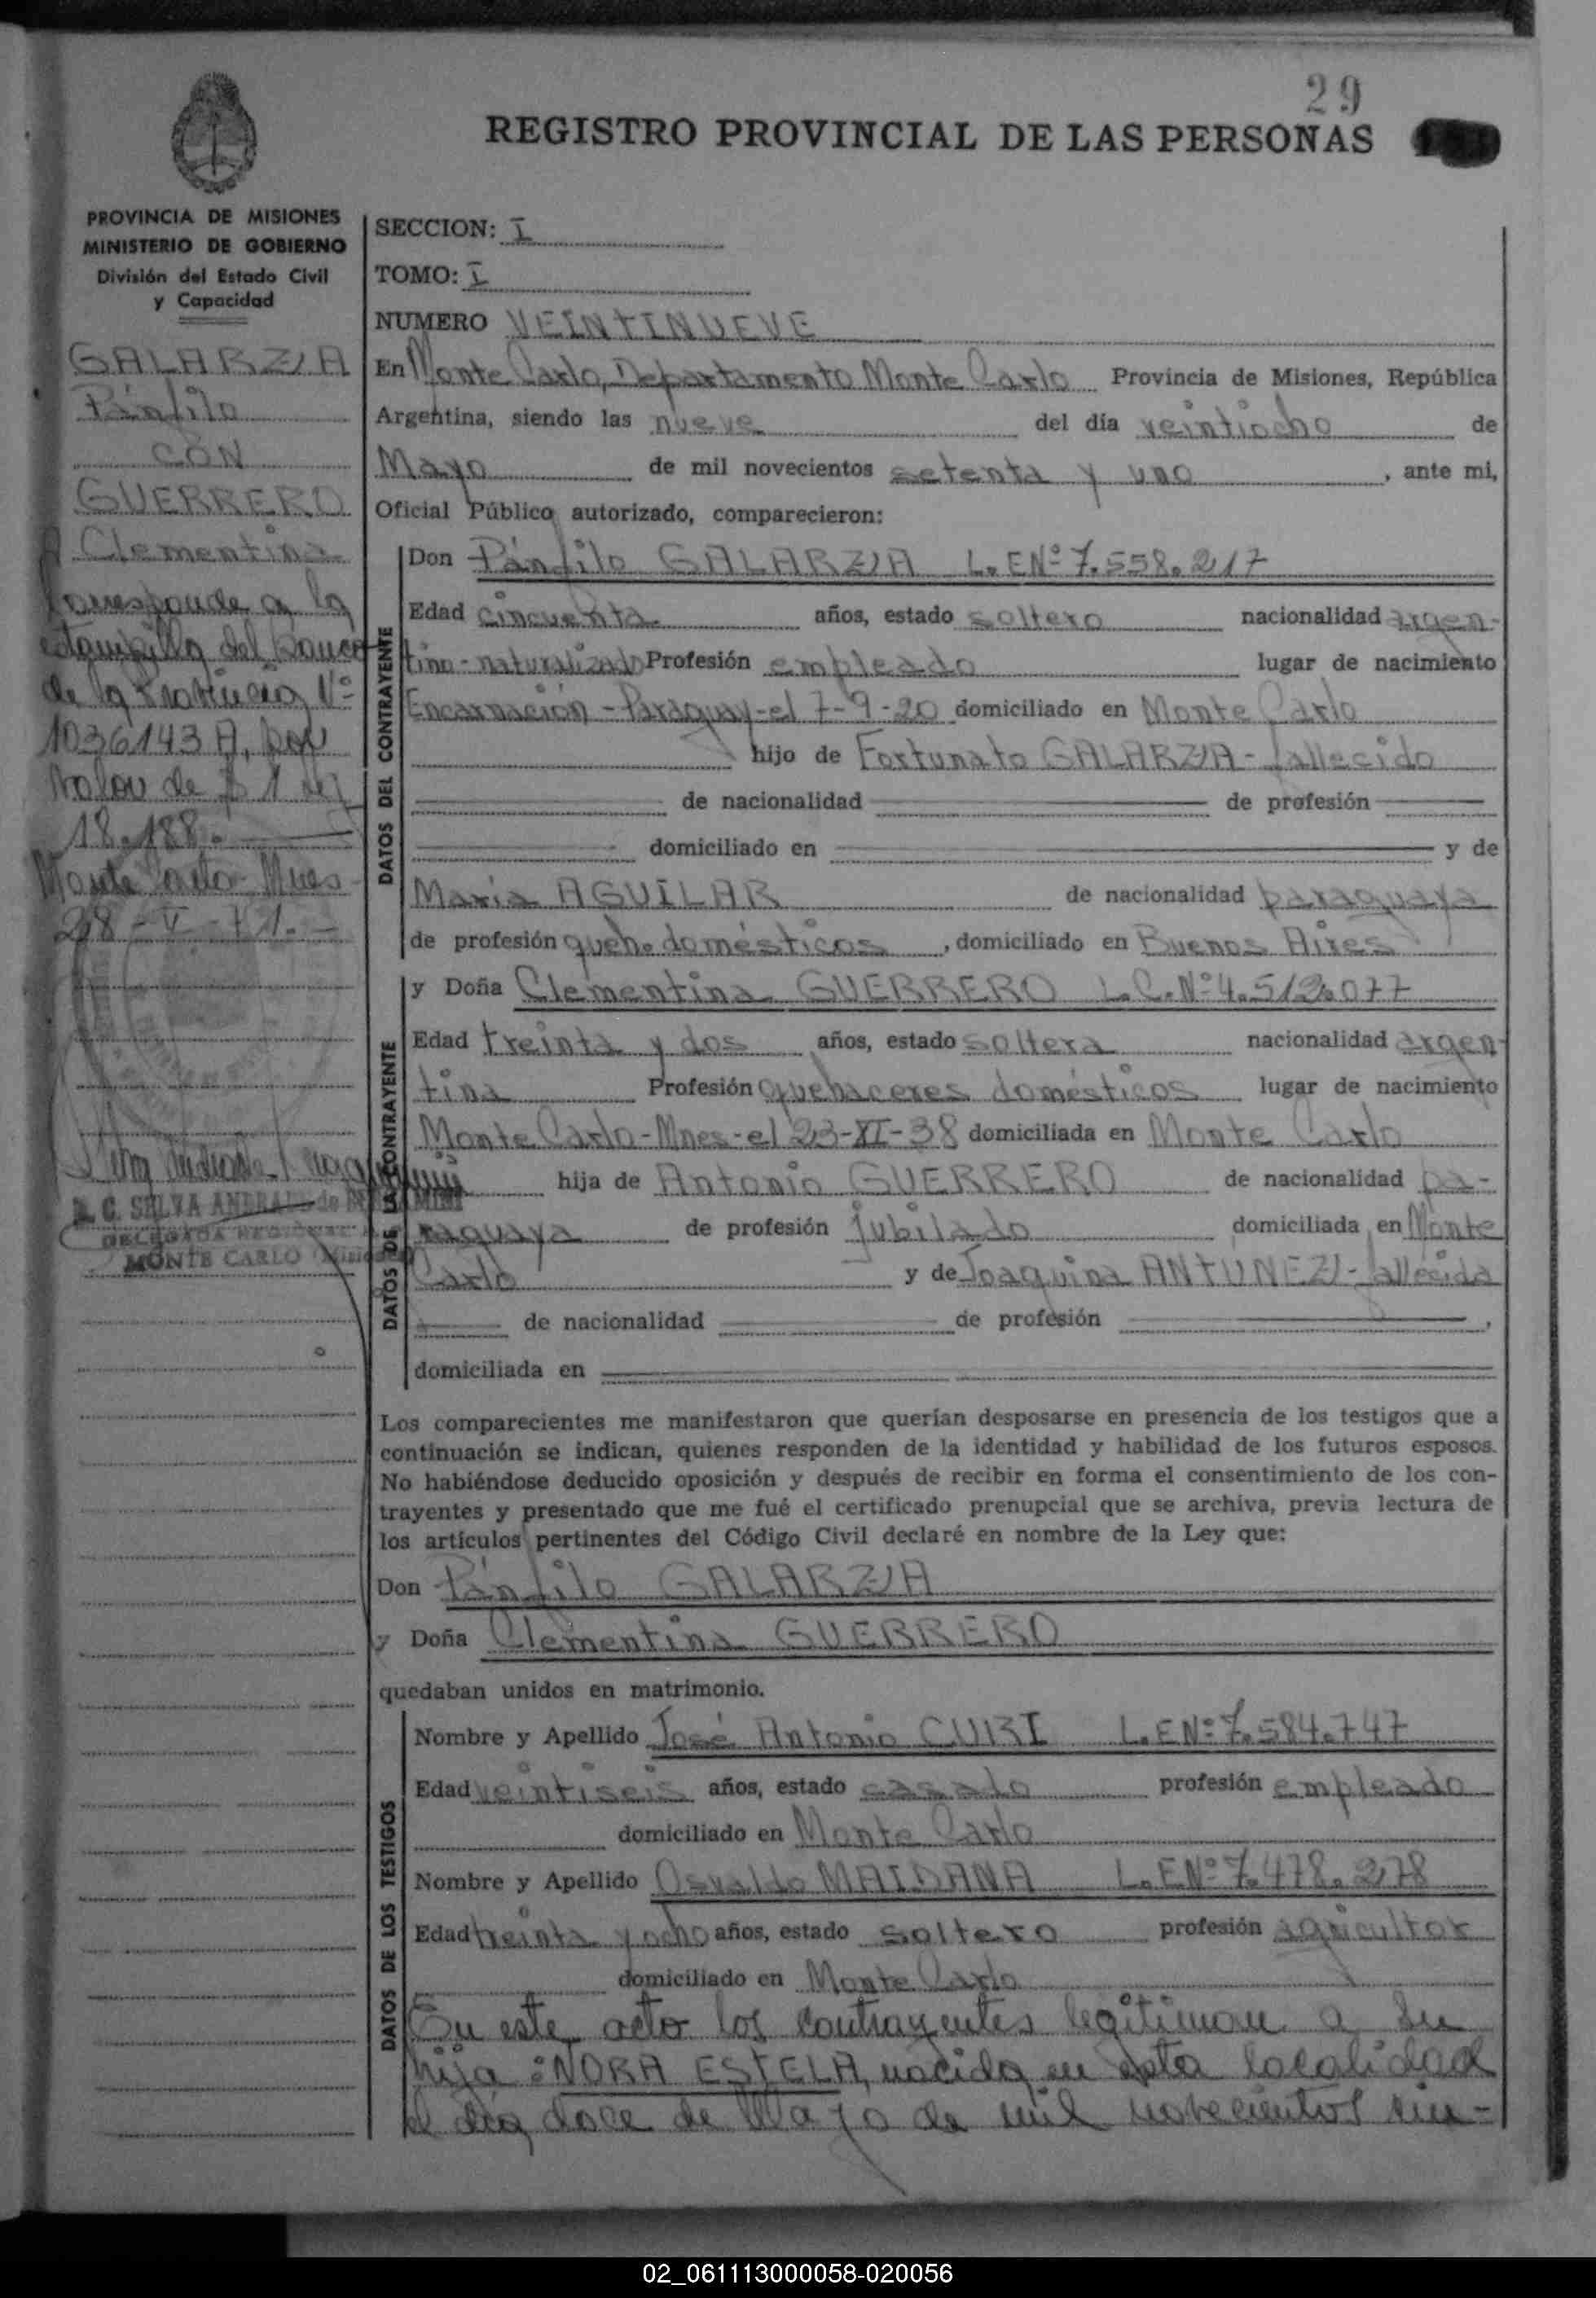 29
REGISTRO PROVINCIAL DE LAS PERSONAS
PROVINCIA DE MISIONES
MINISTERIO DE GOBIERNO
División del Estado Civil
y Capacidad
GALARZA
Pánfilo
CON
GUERRERO
Clementina
Corresponde a la
estampilla del Banco
de la Provincia Nº
1036143 A, por
valor de $ 1 ley
18.188.
Monte Carlo Mnes
28-V-71.-
S. C. SELVA ANDRADE de
DELEGADA REGIONAL
MONTE CARLO (Misiones)
SECCION: I
TOMO: I
NUMERO VEINTINUEVE
En Monte Carlo, Departamento Monte Carlo Provincia de Misiones, República
Argentina, siendo las nueve del día veintiocho de
Mayo de mil novecientos setenta y uno, ante mi,
Oficial Público autorizado, comparecieron:
DATOS DEL CONTRAYENTE
Don Pánfilo GALARZA L.E.Nº 7.558.217
Edad cincuenta años, estado soltero nacionalidad argen-
tino-naturalizado Profesión empleado lugar de nacimiento
Encarnación-Paraguay-el 7-9-20 domiciliado en Monte Carlo
hijo de Fortunato GALARZA-fallecido
de nacionalidad de profesión
domiciliado en y de
María AGUILAR de nacionalidad paraguaya
de profesión queh. domésticos, domiciliado en Buenos Aires
DATOS DE LA CONTRAYENTE
y Doña Clementina GUERRERO L.C.Nº 4.512.077
Edad treinta y dos años, estado soltera nacionalidad argen-
tina Profesión quehaceres domésticos lugar de nacimiento
Monte Carlo-Mnes-el 23-XI-38 domiciliada en Monte Carlo
hija de Antonio GUERRERO de nacionalidad pa-
raguaya de profesión jubilado domiciliada en Monte
Carlo y de Joaquina ANTUNEZ-fallecida
de nacionalidad de profesión ,
domiciliada en
Los comparecientes me manifestaron que querían desposarse en presencia de los testigos que a
continuación se indican, quienes responden de la identidad y habilidad de los futuros esposos.
No habiéndose deducido oposición y después de recibir en forma el consentimiento de los con-
trayentes y presentado que me fué el certificado prenupcial que se archiva, previa lectura de
los artículos pertinentes del Código Civil declaré en nombre de la Ley que:
Don Pánfilo GALARZA
y Doña Clementina GUERRERO
quedaban unidos en matrimonio.
DATOS DE LOS TESTIGOS
Nombre y Apellido José Antonio CUBI L.E.Nº 7.584.747
Edad veintiseis años, estado casado profesión empleado
domiciliado en Monte Carlo
Nombre y Apellido Osvaldo MAIDANA L.E.Nº 7.478.278
Edad treinta y ocho años, estado soltero profesión agricultor
domiciliado en Monte Carlo
En este acto los contrayentes legitiman a su
hija: NORA ESTELA, nacida en esta localidad
el día doce de Mayo de mil novecientos sin-
02_061113000058-020056